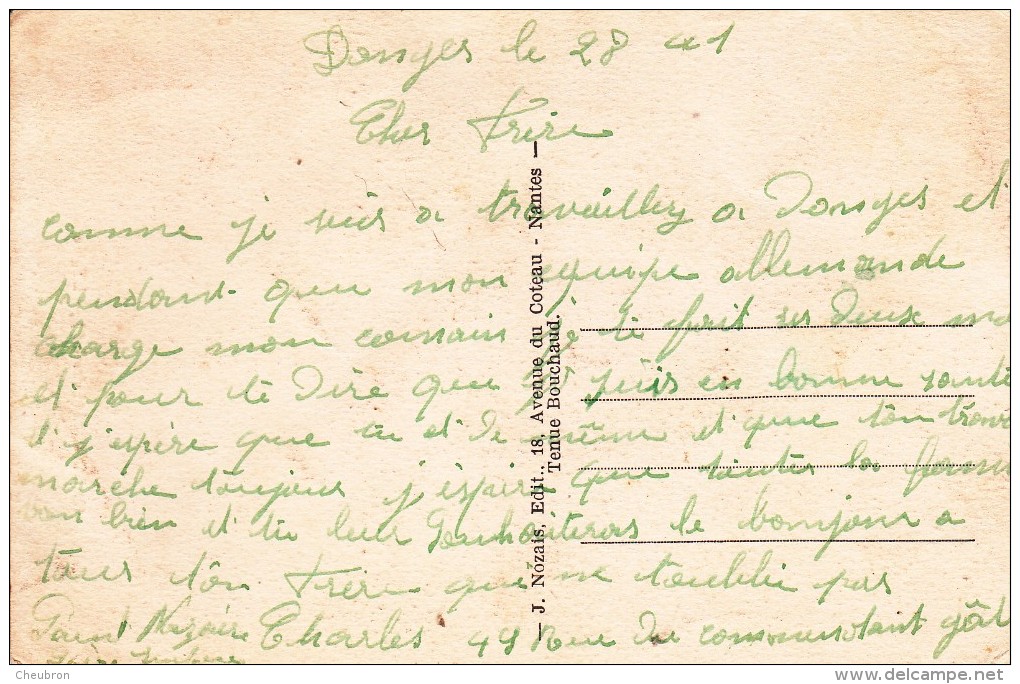 Donges le 28 41
Cher Frère
comme je suis a travailley a Donges et
pendant que mon equipe allemande
charge mon comain je te fait ses deux mo
et pour te dire que je suis en bonne santé
et j'espère que tu et de même et que ton trava
marche toujour j'espère que toutes la famm
von bien et tu leur souhaiteras le bonjour a
tous tôn Frère qui ne toublie pas
Charles 49 Rue du commendant gât
Saint Nazaire
— J. Nozais, Edit., 18, Avenue du Coteau - Nantes —
Tenue Bouchaud.
Cheubron
delcampe.net